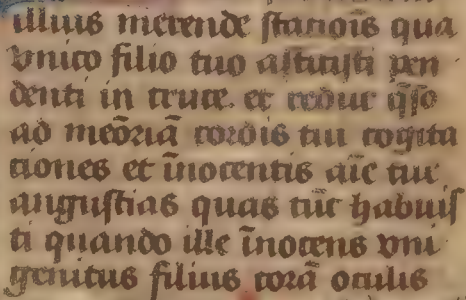 illius merende stationis qua
vnico filio tuo astitisti pen
denti in cruce. et reduc q̄so
ad meōriā cordis tui cogita
tiones et īnocentis aīe tue
angustias quas tūc habuis
ti quando ille īnocens vni
genitus filius corā oculis